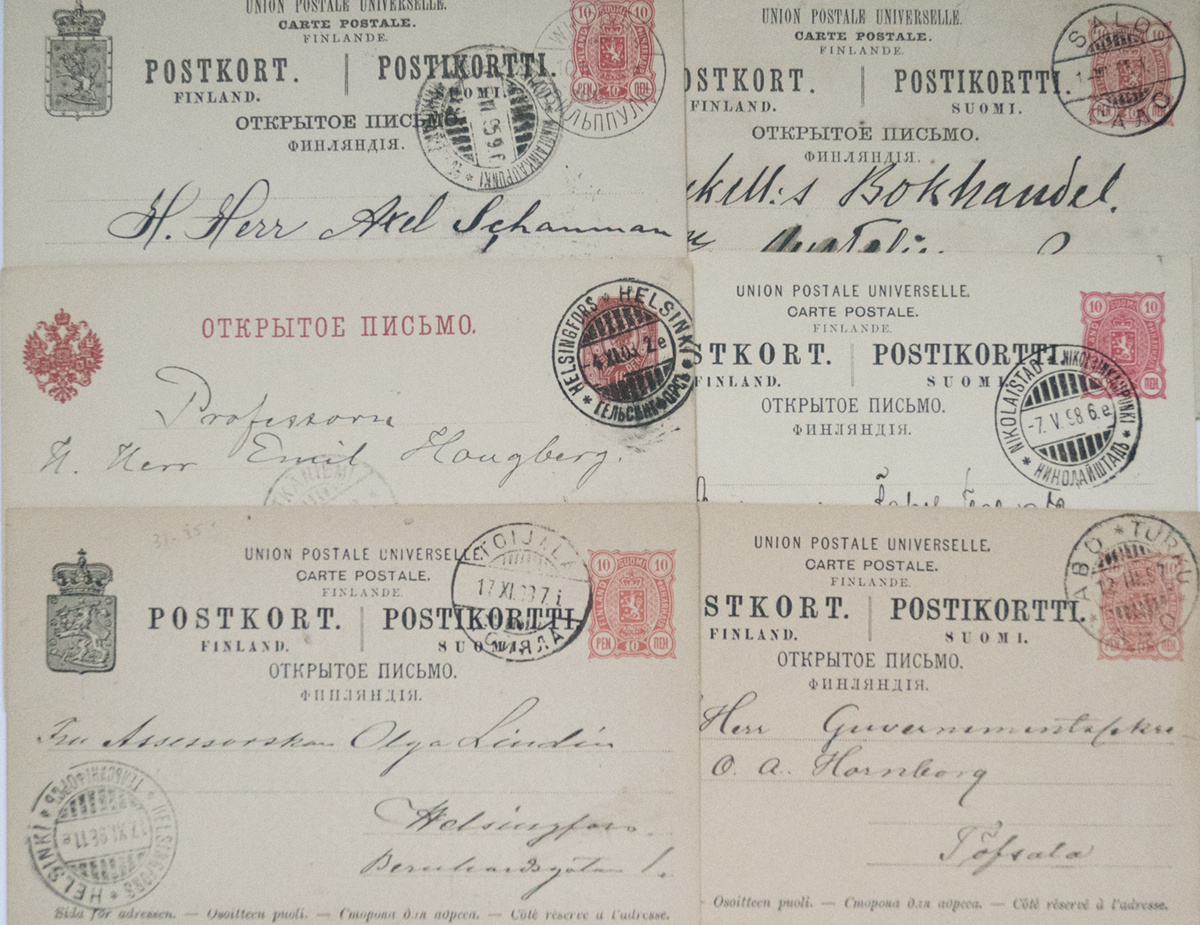 UNION POSTALE UNIVERSELLE.
CARTE POSTALE.
FINLANDE.
POSTKORT. POSTIKORTTI.
FINLAND. OMI.
ОТКРЫТОЕ ПИСЬМО.
ФИНЛЯНДІЯ.
10 10
PEN. 10 ПЕН.
H. Herr Axel Schauman
UNION POSTALE UNIVERSELLE.
CARTE POSTALE.
FINLANDE.
OSTKORT. POSTIKORTTI.
FINLAND. SUOMI.
ОТКРЫТОЕ ПИСЬМО.
ФИНЛЯНДІЯ.
10 10
SALO
САЛО
Bokhandel.
ОТКРЫТОЕ ПИСЬМО.
HELSINGFORS * HELSINKI
4.XI.03. 2.e
ГЕЛЬСИНГФОРСЪ
Professorn
H. Herr Emil Hougberg.
UNION POSTALE UNIVERSELLE.
CARTE POSTALE.
FINLANDE.
STKORT. POSTIKORTTI.
FINLAND. SUOMI.
ОТКРЫТОЕ ПИСЬМО.
ФИНЛЯНДІЯ.
10 SUOMI 10
ПЕН.
NIKOLAISTAD * NIKOLAINKAUPUNKI
-7.V.98 6.e
НИКОЛАЙШТАДЪ
UNION POSTALE UNIVERSELLE.
CARTE POSTALE.
FINLANDE.
POSTKORT. POSTIKORTTI.
FINLAND. SUOMI.
ОТКРЫТОЕ ПИСЬМО.
ФИНЛЯНДІЯ.
10 SUOMI 10
PEN. 10 ПЕН.
TOIJALA
17.XI.98 7.i
Fru Assessorskan Olga Lindén
Helsingfors.
Bernhardsgatan 1.
HELSINKI * HELSINGFORS
17.XI.98.11.e
Sida för adressen. — Osoitteen puoli. — Сторона для адреса. — Côté réservé à l'adresse.
UNION POSTALE UNIVERSELLE.
CARTE POSTALE.
FINLANDE.
STKORT. POSTIKORTTI.
FINLAND. SUOMI.
ОТКРЫТОЕ ПИСЬМО.
ФИНЛЯНДІЯ.
ABO * TURKU
Herr Guvernementssekre
O. A. Hornborg
Töfsala
Osoitteen puoli. — Сторона для адреса. — Côté réservé à l'adresse.